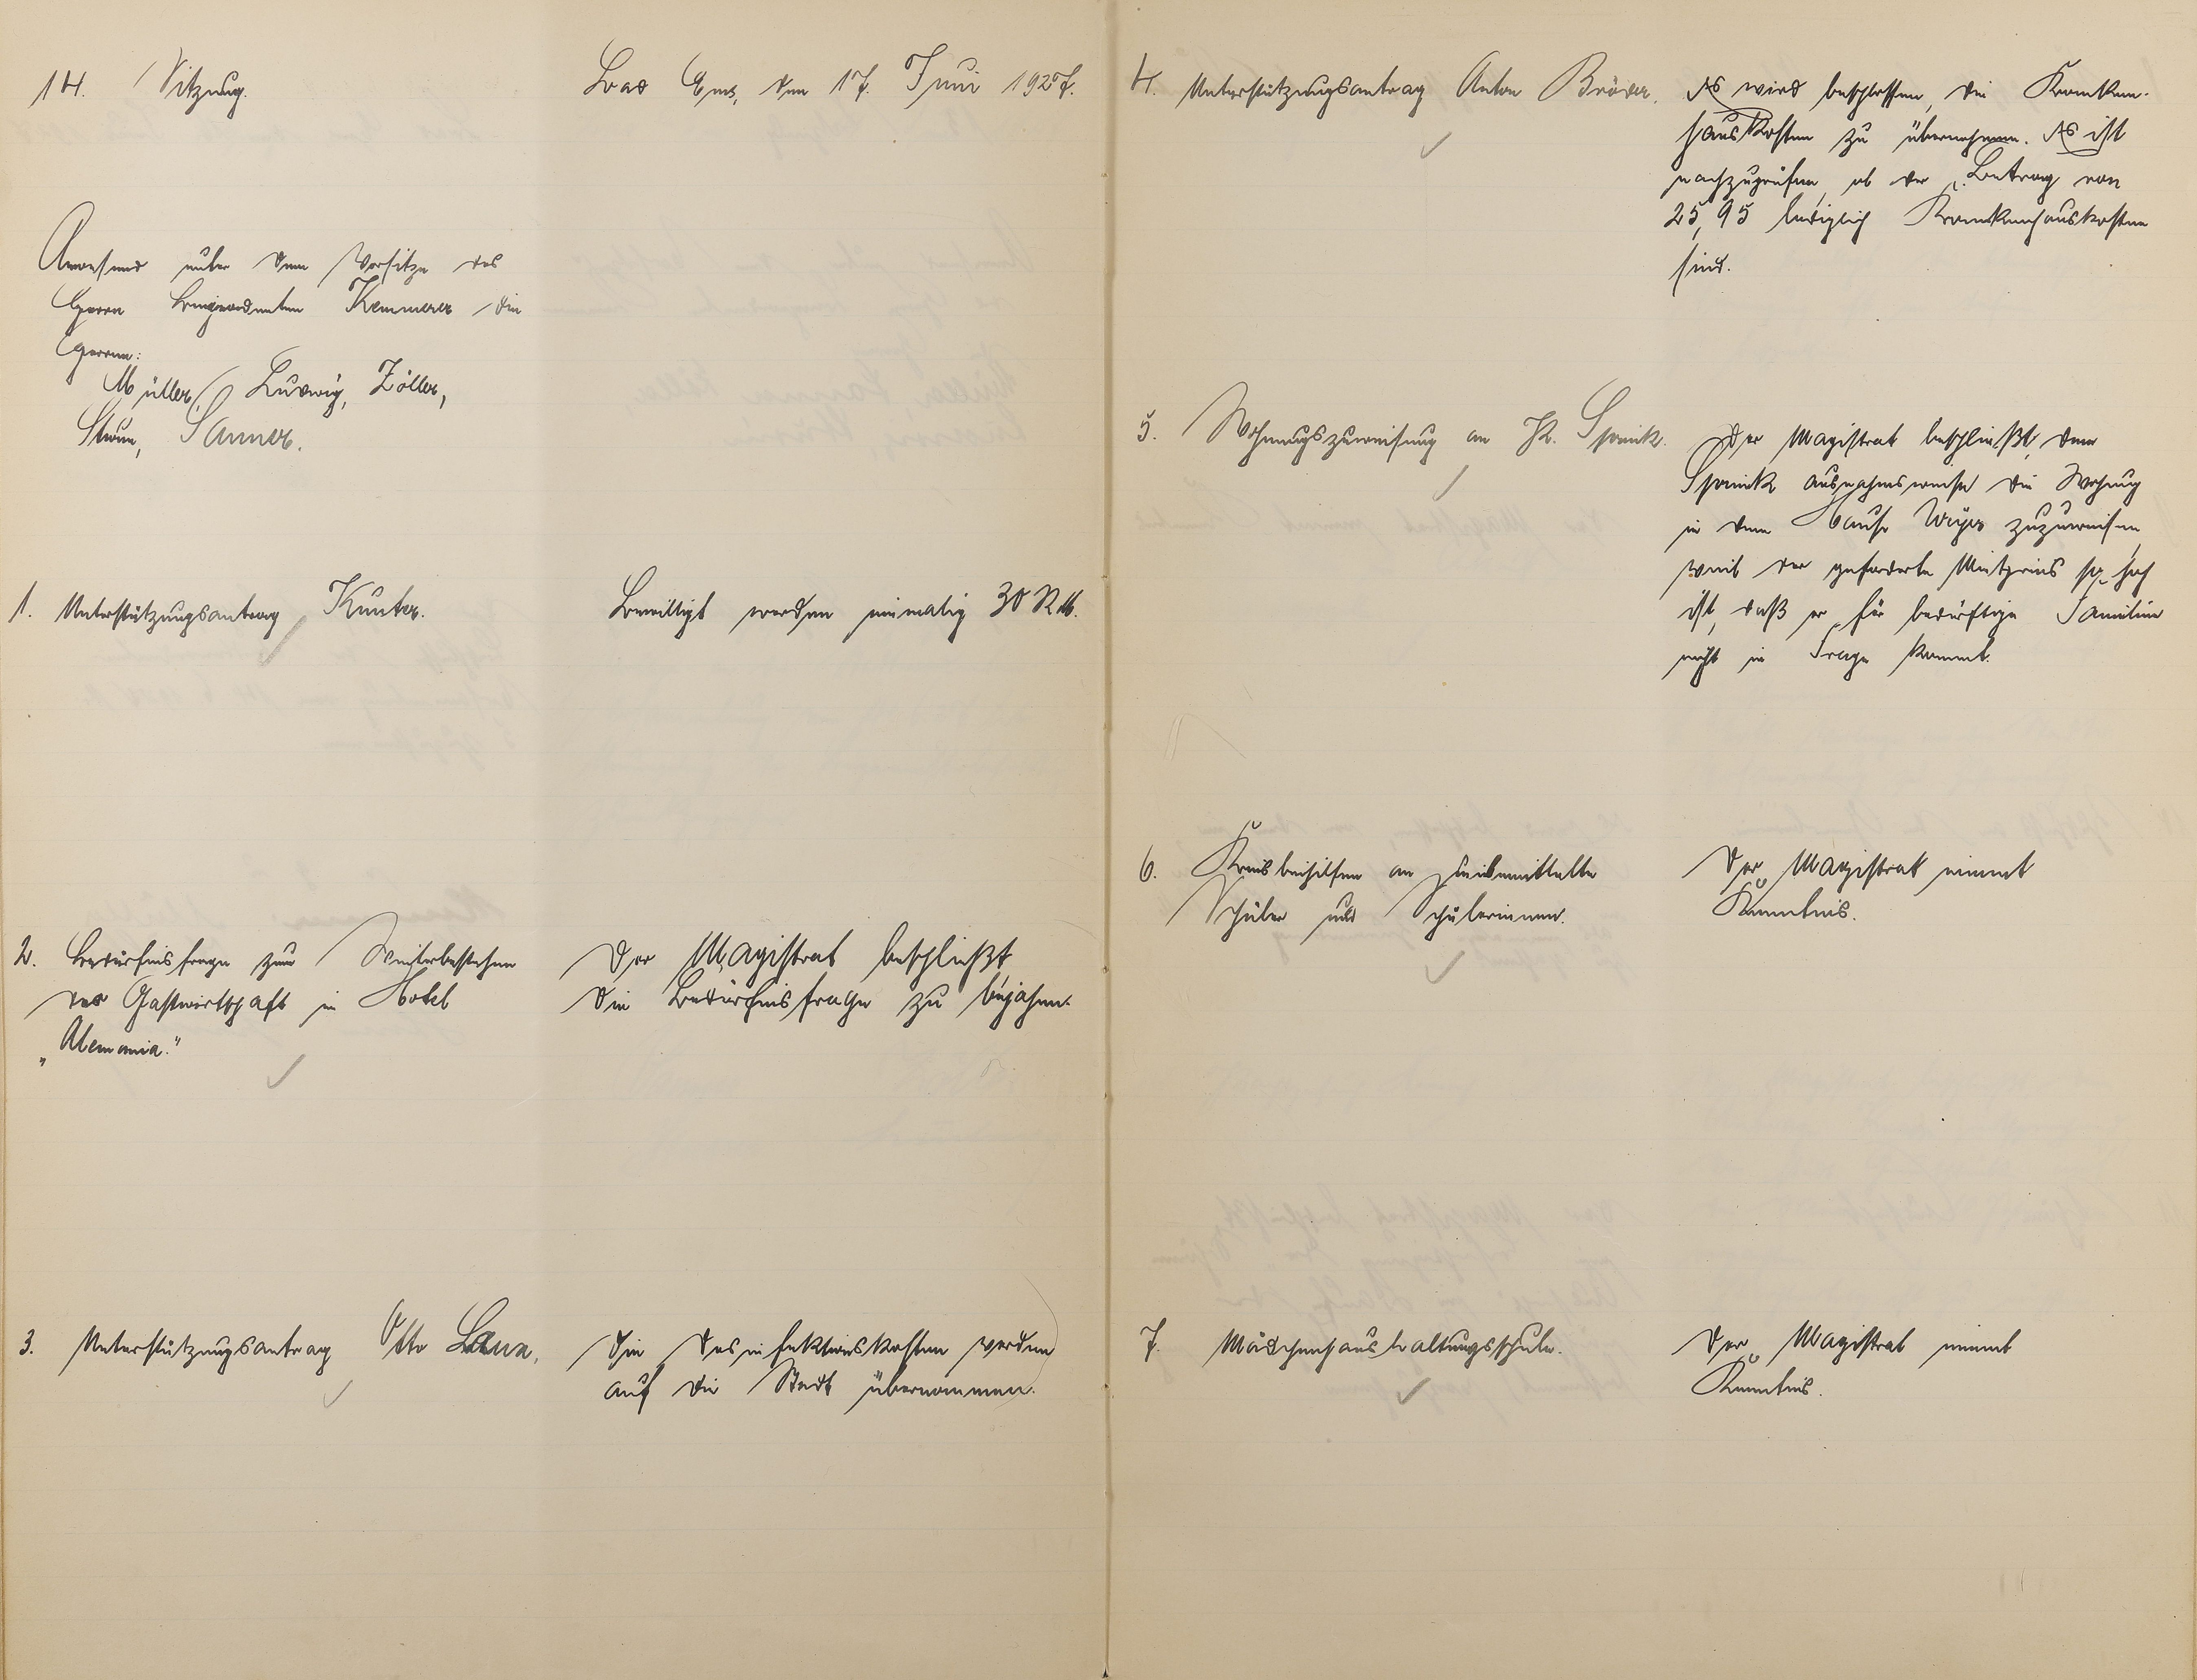 14. Sitzung.
Bad Ems, den 17. Juni 1927.
Anwesend unter dem Vorsitze des
Herrn Beigeordneten Kemmerer die
Herren:
Müller, Ludwig, Zöller,
Thoma,
1. Unterstützungsantrag Kunter.
Bewilligt werden einmalig 30 RM.
2. Bedürfnisfrage zum Weiterbestehen
der Gastwirtschaft im Hotel
„Alemania."
Der Magistrat beschließt,
die Bedürfnisfrage zu bejahen.
3. Unterstützungsantrag Otto
Die Desinfektionskosten werden
auf die Stadt übernommen.
4. Unterstützungsantrag Anton Bröder.
Es wird beschlossen, die Kranken-
hauskosten zu übernehmen. Es ist
nachzuprüfen, ob der Betrag von
25,95 lediglich Krankenhauskosten
sind.
5. Wohnungszuweisung an
Der Magistrat beschließt, dem
ausnahmsweise die Wohnung
in dem Hause zuzuweisen,
weil der geforderte Mietpreis so hoch
ist, daß er für bedürftige Familien
nicht in Frage kommt.
6. Kreisbeihilfen an unbemittelte
Schüler und Schülerinnen.
Der Magistrat nimmt
Kenntnis.
7. Mädchenhaushaltungsschule.
Der Magistrat nimmt
Kenntnis.